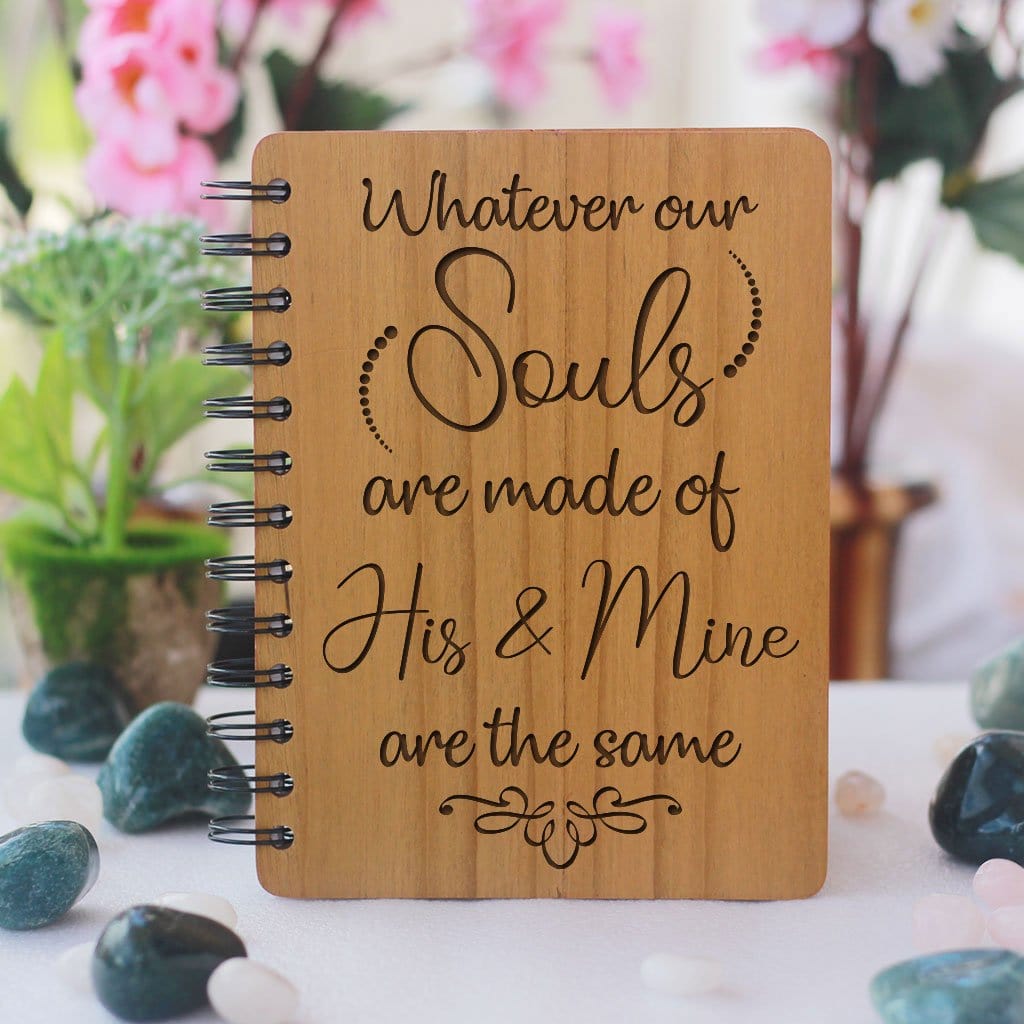 Whatever our
Souls
are made of
His & Mine
are the same